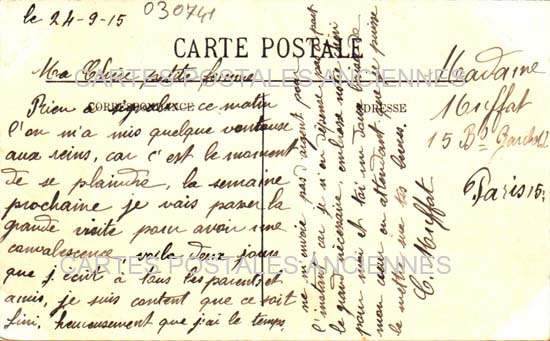 le 24-9-15
030741
CARTE POSTALE
Ma Chère petite femme
CARTES POSTALES ANCIENNES
CORRESPONDANCE
ADRESSE
Rien à ce matin
l'on m'a mis quelque ventouse
aux reins, car c'est le moment
de se plaindre, la semaine
prochaine je vais passer la
grande visite pour avoir une
convalescence, voila deux jours
que j'écrit à tous tes parents et
amis, je suis content que ce soit
fini, heureusement que j'ai le temps,
CARTES POSTALES ANCIENNES
ne m'envoie pas d'argent pour
l'instant car je n'en dépense pas, part
le grand nécessaire, embrasse nos
pour moi et toi un doux baiser de
mon cœur en attendant que je puisse
le mettre sur tes lèvres.
C. Muffat
Madame
Muffat
15 Bd
Paris 15e